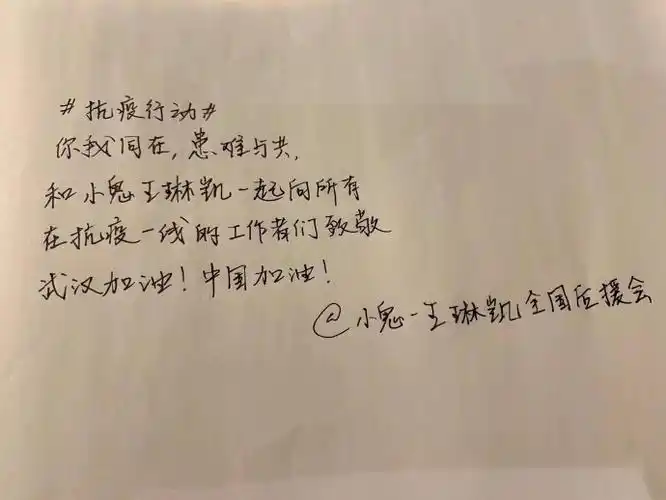 #抗疫行动#
你我同在，患难与共，
和小鬼王琳凯一起向所有
在抗疫一线的工作者们致敬
武汉加油！中国加油！
@小鬼-王琳凯全国后援会